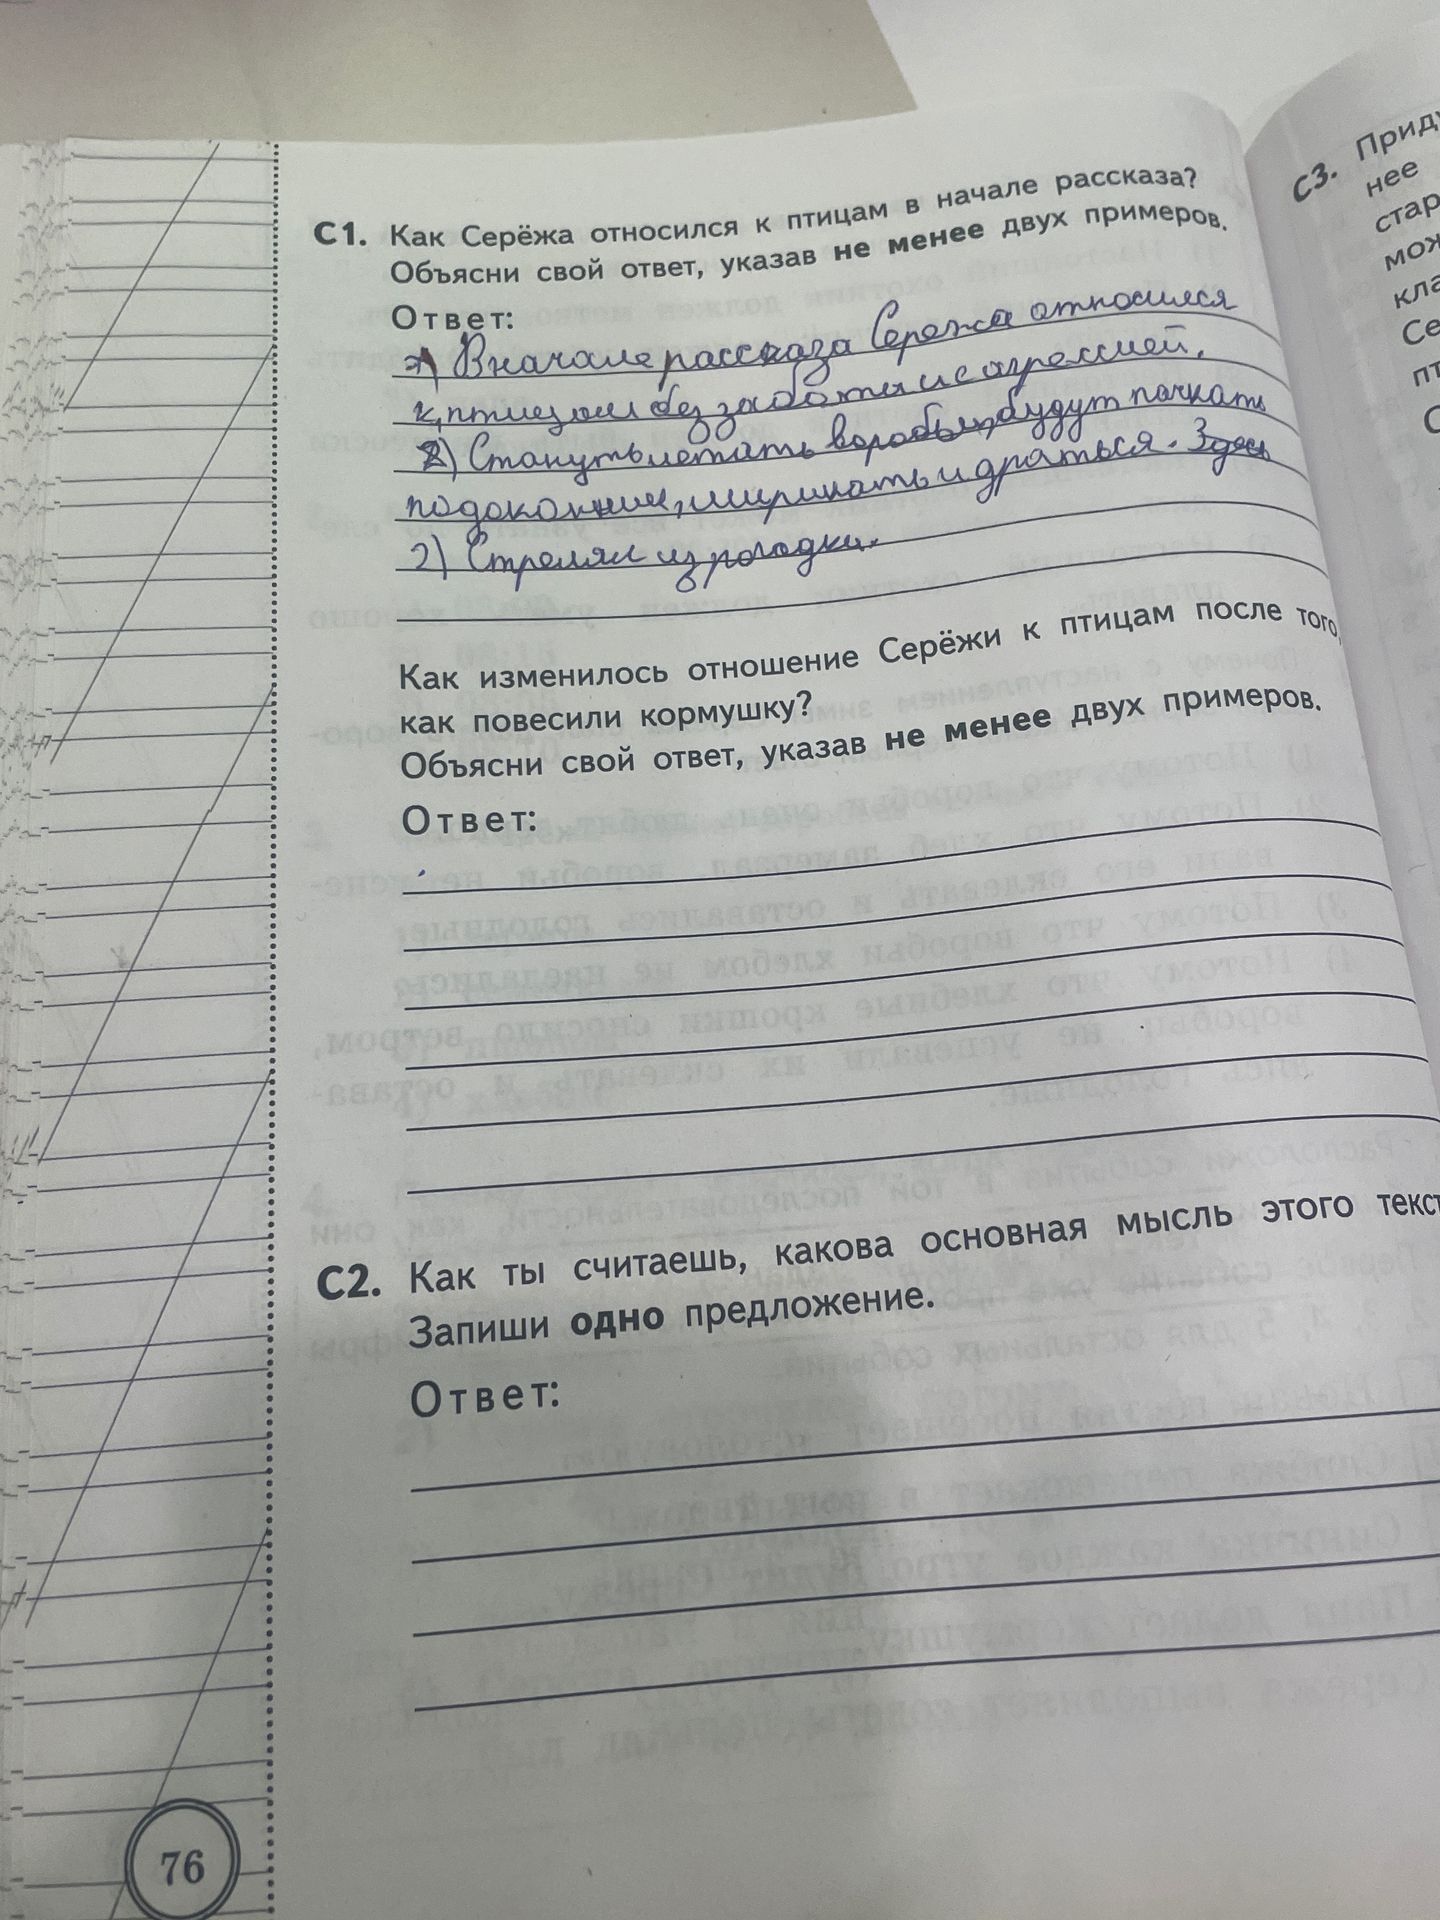 С1. Как Серёжа относился к птицам в начале рассказа?
Объясни свой ответ, указав не менее двух примеров.
Ответ:
Вначале рассказа Сережа относился
к птицам без заботы и с агрессией.
2) Стануть летать воробьи, будут пачкать
подоконник, чирикать и драться. Здесь
2) Стрелял из рогадки.
Как изменилось отношение Серёжи к птицам после того,
как повесили кормушку?
Объясни свой ответ, указав не менее двух примеров.
Ответ:
С2. Как ты считаешь, какова основная мысль этого текст
Запиши одно предложение.
Ответ:
76
С3. Приду
нее
стар
мож
кла
Се
пт